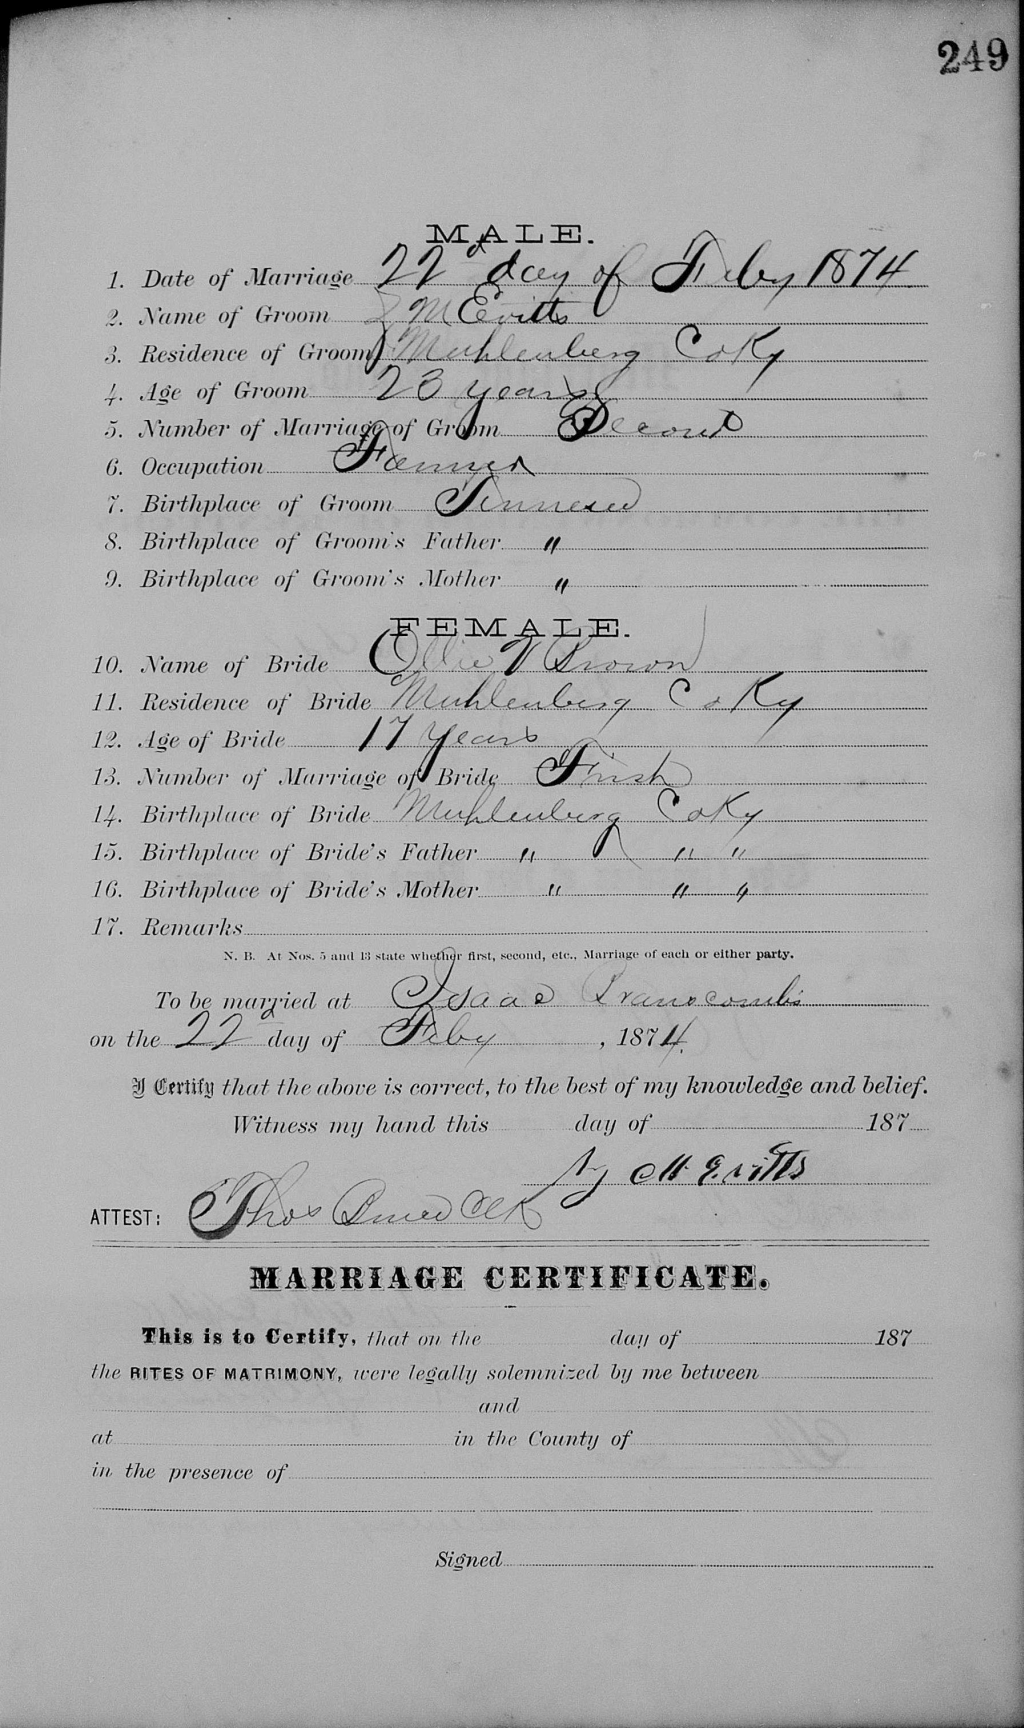 249
MALE.
1. Date of Marriage 22d day of Feby 1874
2. Name of Groom M Evitts
3. Residence of Groom Muhlenberg Co Ky
4. Age of Groom 23 years
5. Number of Marriage of Groom Second
6. Occupation Farmer
7. Birthplace of Groom Tennessee
8. Birthplace of Groom's Father "
9. Birthplace of Groom's Mother "
FEMALE.
10. Name of Bride Ollie V Brown
11. Residence of Bride Muhlenberg Co Ky
12. Age of Bride 17 years
13. Number of Marriage of Bride First
14. Birthplace of Bride Muhlenberg Co Ky
15. Birthplace of Bride's Father " " "
16. Birthplace of Bride's Mother " " "
17. Remarks
N. B. At Nos. 5 and 13 state whether first, second, etc., Marriage of each or either party.
To be married at Isaac Branscombs
on the 22d day of Feby , 1874.
I Certify that the above is correct, to the best of my knowledge and belief.
Witness my hand this day of 187
M Evitts
ATTEST: Thos Bruce Clk
MARRIAGE CERTIFICATE.
This is to Certify, that on the day of 187
the RITES OF MATRIMONY, were legally solemnized by me between
and
at in the County of
in the presence of
Signed